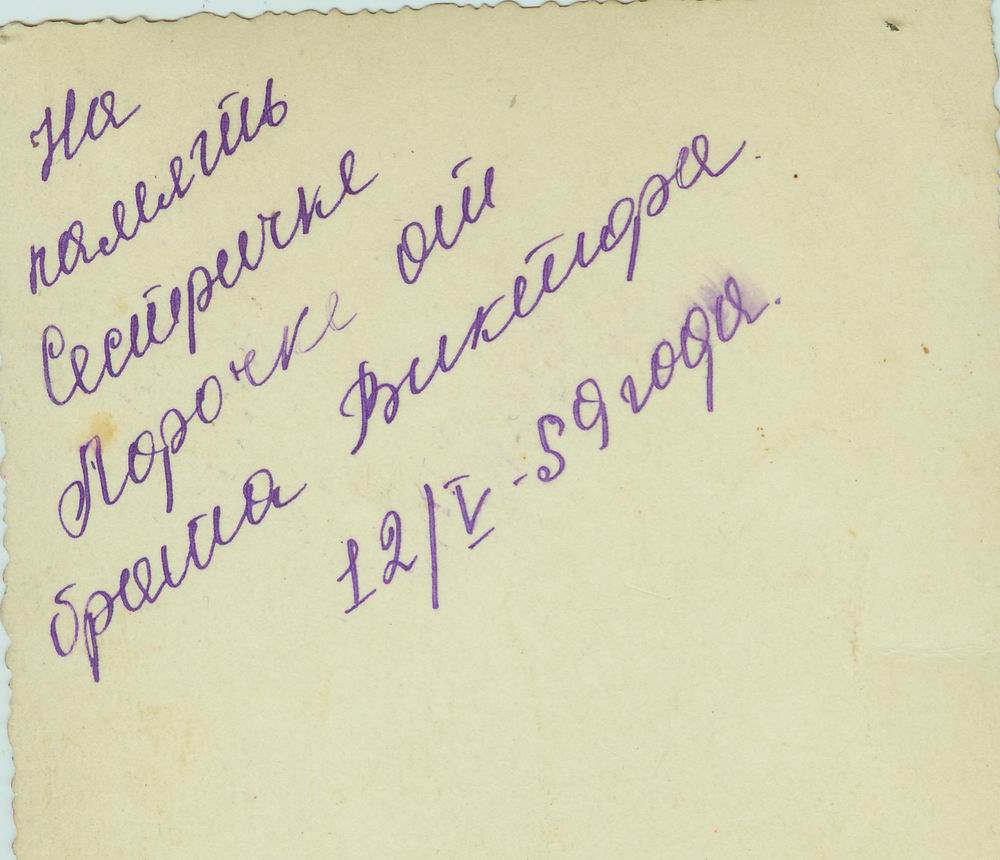 На
память
Сестричке
Лорочке от
брата Виктора.
12/V-59 года.